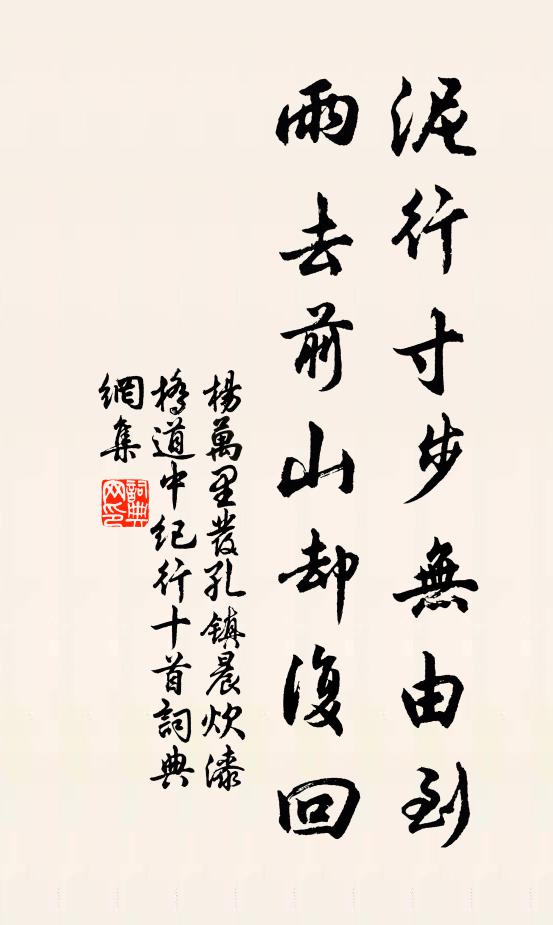 泥行寸步無由到
雨去前山却復回
楊萬里發孔鎮晨炊漆
橋道中纪行十首詞典
網集
詞典
网印